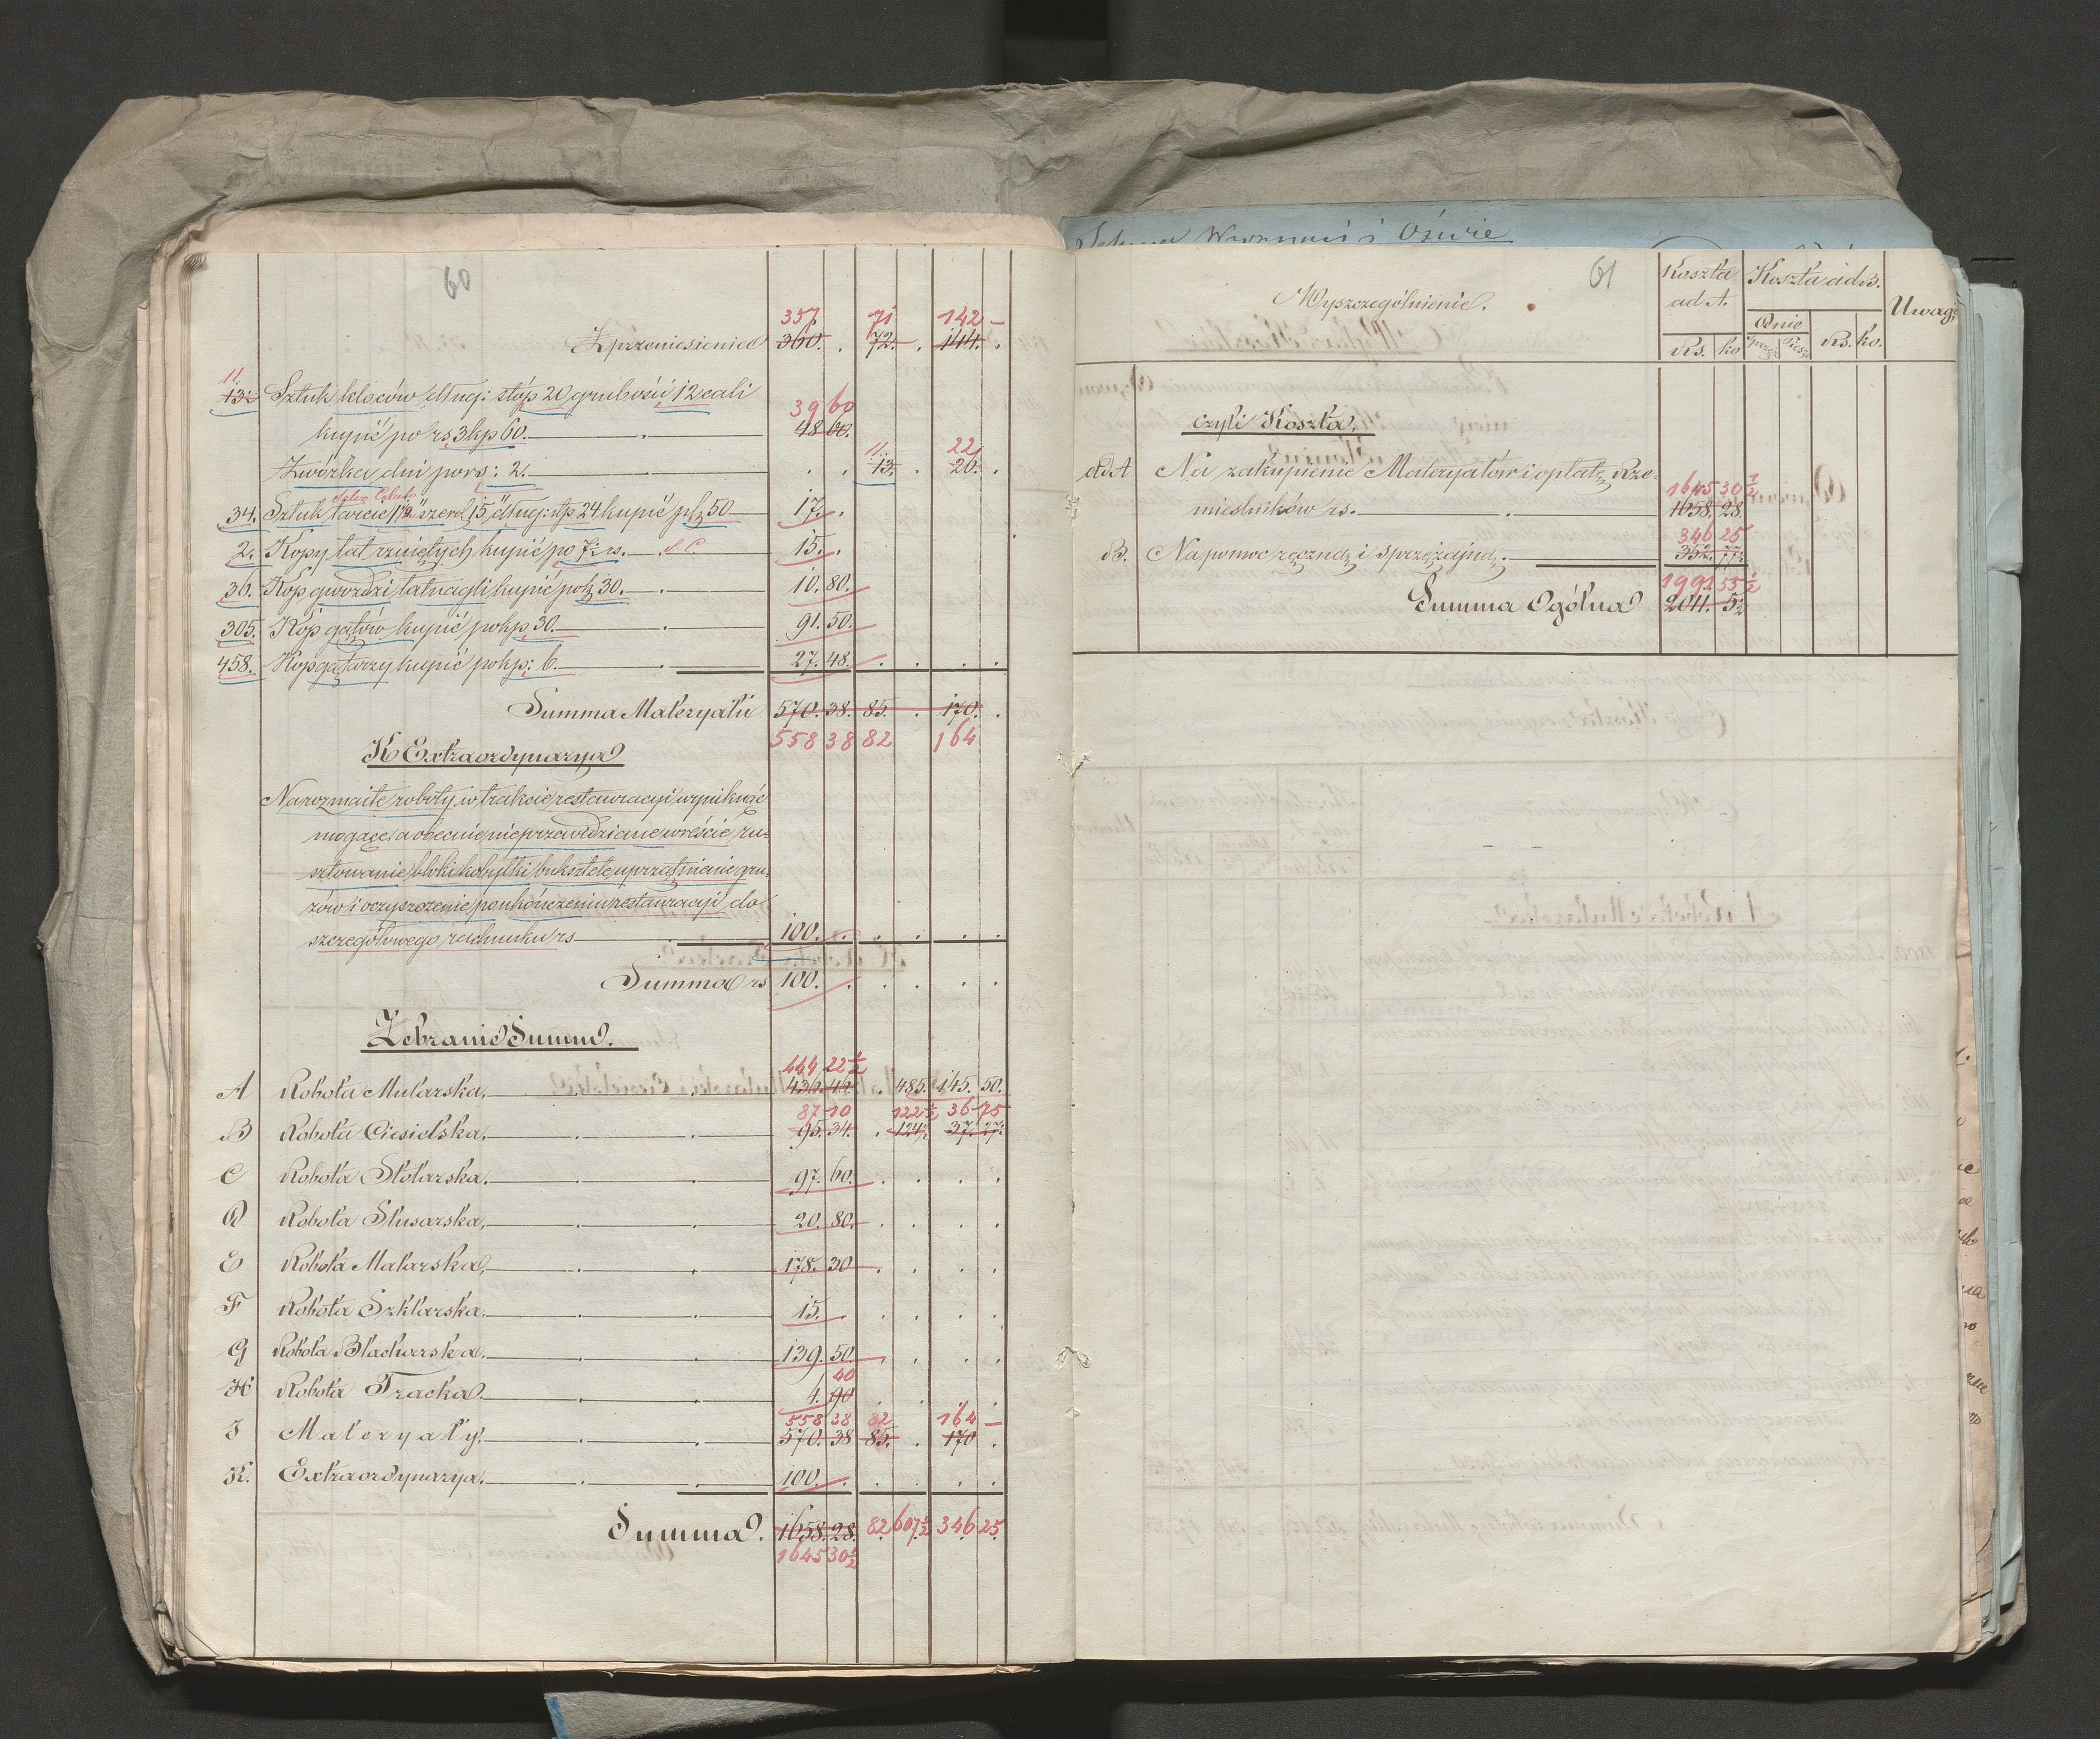 60
357 71 142 –
Z przeniesienia 360. . 72. . 144. .
11.
13½ Sztuk kloców dług: stóp 20 grubości 12 cali
39 60
kupić po rs 3 kp 60. 48 60.
11. 22
Zwózka dni po rs: 2. . . 13. . 26. .
34. Sztuk tarcic 1½" szerok 15" dług: stp 24 kupić po kp 50 17. .
2. Kopy łat rzniętych kupić po 7½ rs. S. C. 15. .
36. Kop gwoździ łatnagli kupić po kp 30. 10. 80.
305. Kop gątów kupić po kp. 30. 91. 50.
458. Kop gątarzy kupić po kp: 6. 27. 48. . . . .
Summa Materyału 570. 38. 85. . 170. .
558 38 82 164
K Extraordynarya
Na rozmaite roboty w trakcie restauracyi wyniknąć
mogące a obecnie nieprzewidziane wreście ru=
sztowanie bloki kobyłki buksztele uprzątnienie gru=
zów i oczyszczenie po ukończeniu restauracyi do
szczegółowego rachunku rs 100. . . . . .
Summa rs 100. . . . . .
Zebranie Summ.
444 22½
A Robota Mularska. 436. 46. . 485. 145. 50.
87 10 122½ 36 75
B Robota Ciesielska. 95. 34. . 124½ 37. 27½
C Robota Stolarska. 97. 60. . . . .
D Robota Slusarska. 20. 80. . . . .
E Robota Malarska. 178. 30 . . . .
F Robota Szklarska. 15. . . . . .
G Robota Blacharska. 139. 50. . . . .
40
H Robota Tracka. 4. 90 . . . .
558 38 82 164 –
I Materyały. 570. 38 85. . 170 .
K. Extraordynarya. 100. . . . . .
Summa. 1658. 28. 82 607½ 346 25.
1645 30½
61
Wyszczególnienie. Koszta ad A. Koszta ad B. Uwagi
Dnie
Rs. ko Sprzęż Piesze Rs. ko.
czyli Koszta.
ad A Na zakupienie Materyałów i opłatę Rze=
1645 30½
mieślników rs. 1658. 28.
346 25
B. Na pomoc ręczną i sprzężajną. 352. 77½
1991 55½
Summa Ogólna 2011. 5½